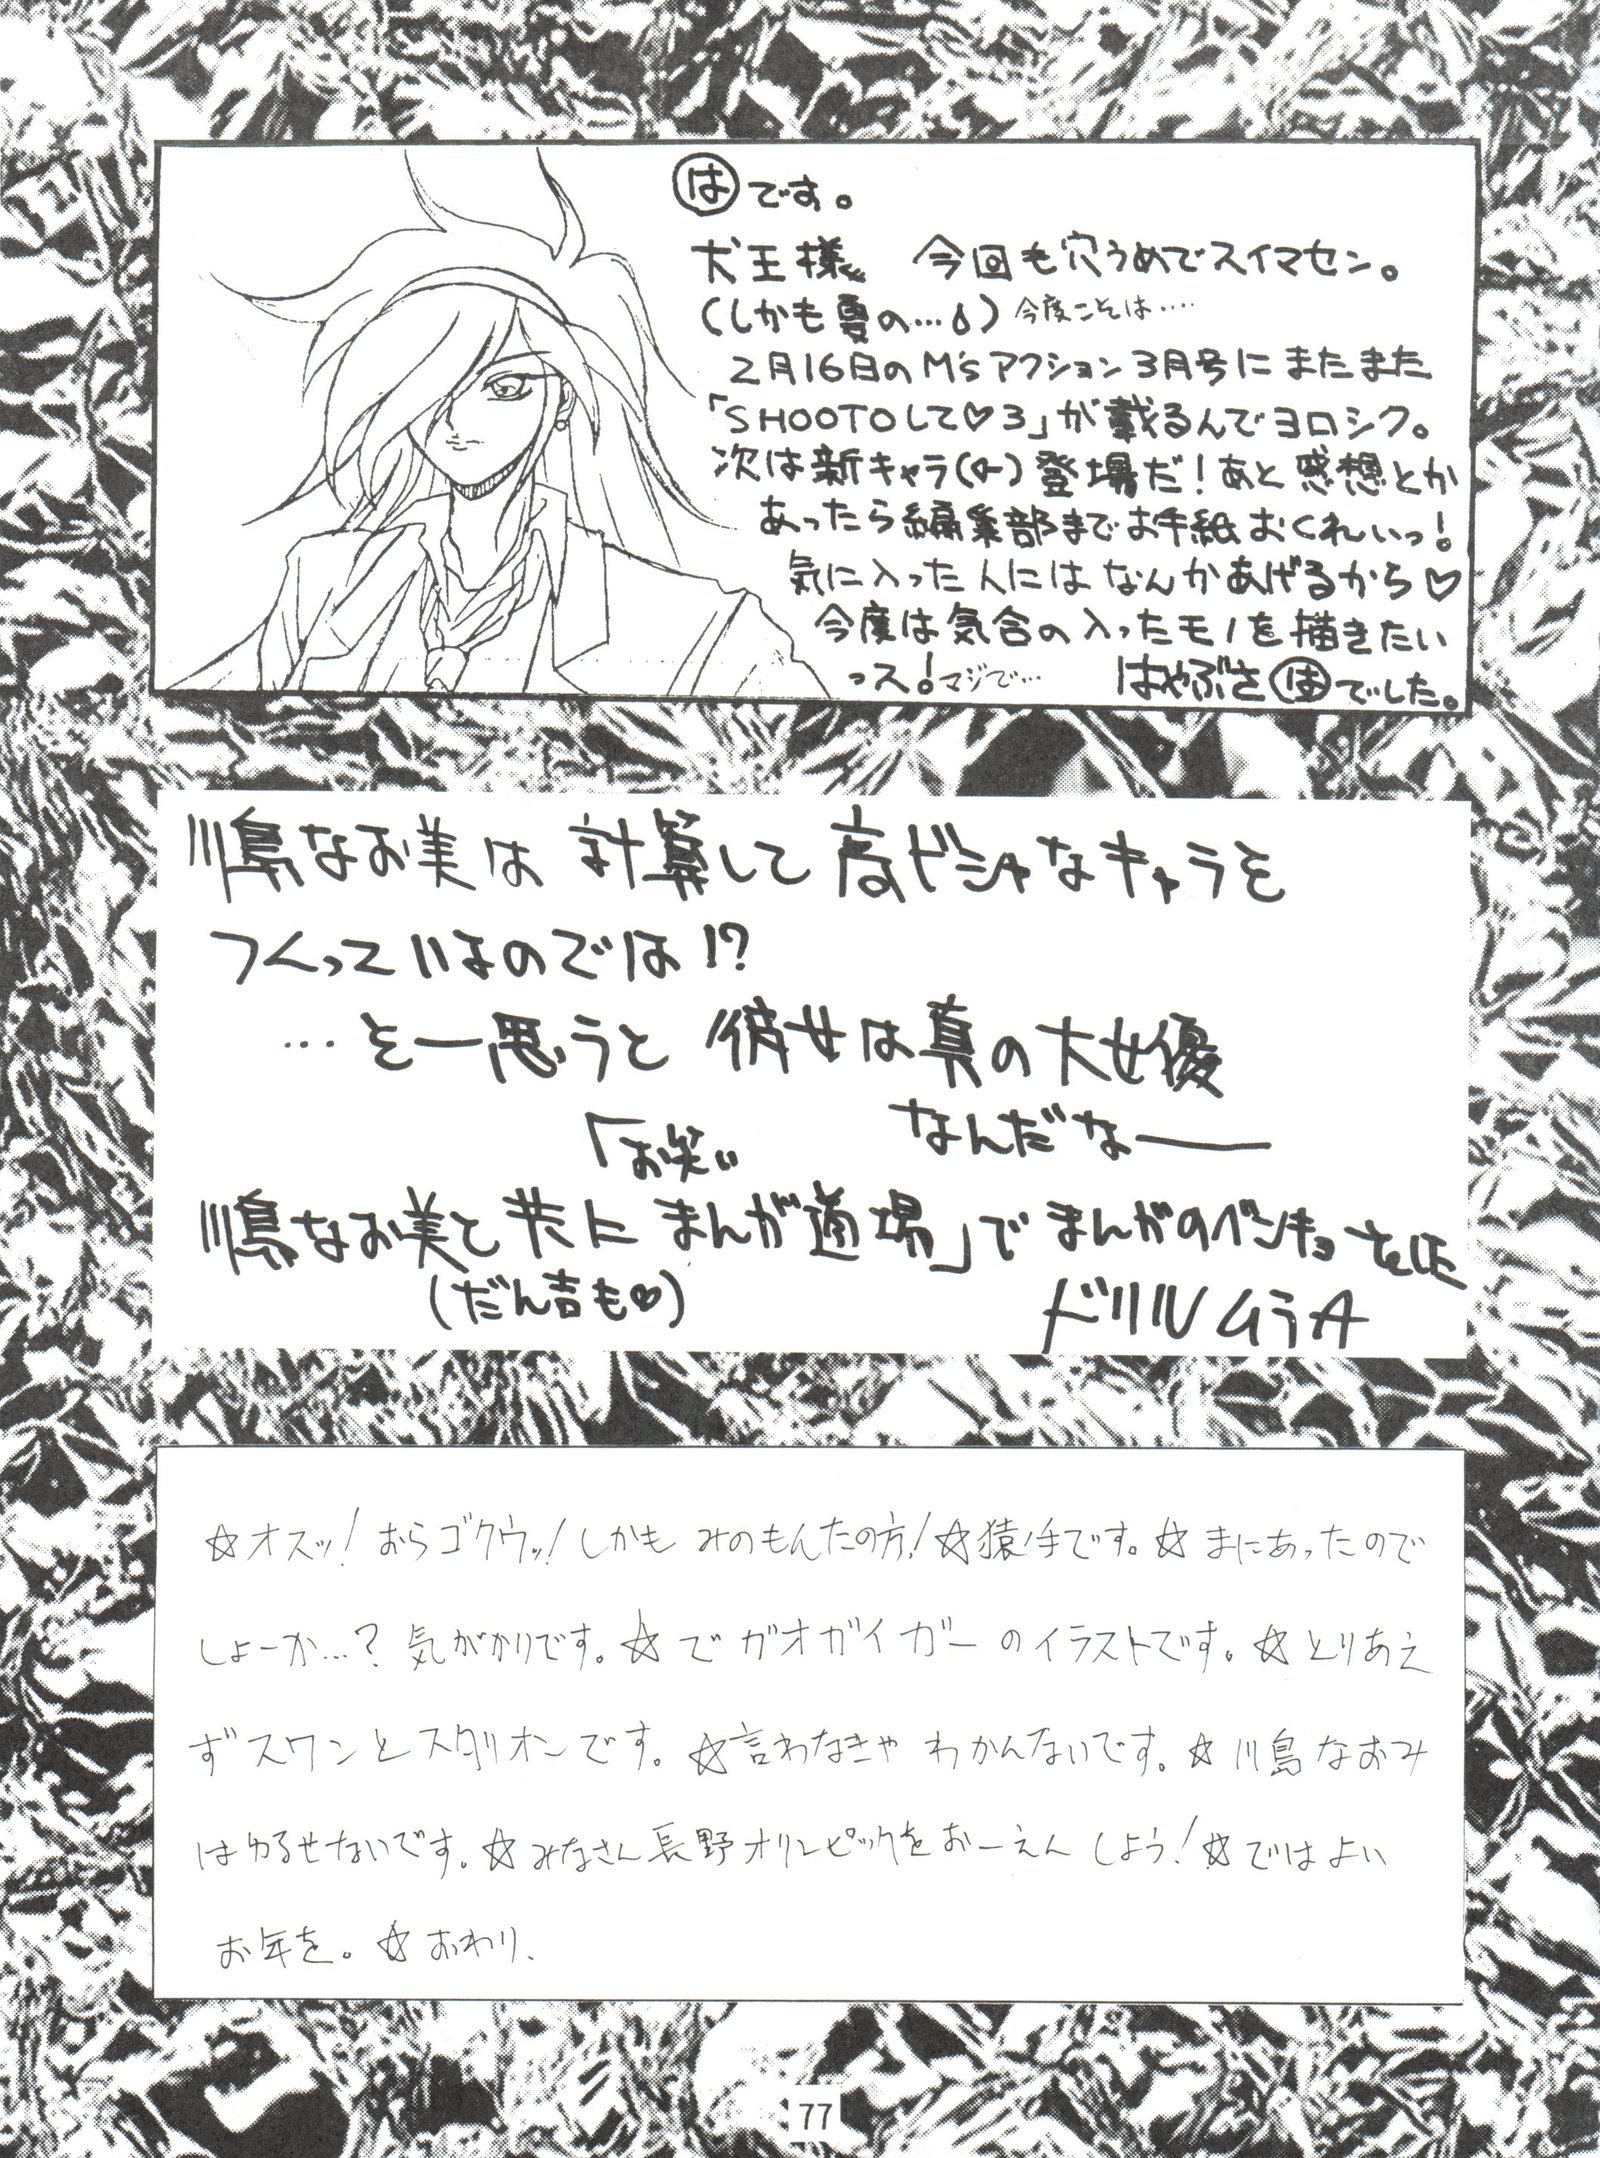 はです。
犬王様 今回も穴うめでスイマセン。
(しかも夏の…) 今度こそは‥‥
2月16日のM'sアクション3月号にまたまた
「SHOOTOして♡3」が載るんでヨロシク。
次は新キャラ(♀)登場だ!あと感想とか
あったら編集部までお手紙おくれいっ!
気に入った人にはなんかあげるから♡
今度は気合の入ったモノを描きたい
っス!マジで… はやぶさはでした。
川島なお美は計算して高ビシャなキャラを
つくっているのでは!?
…と一思うと彼女は真の大女優
なんだなー
「お笑い
川島なお美と共にまんが道場」でまんがのベンキョーをした
(だん吉も♡) ドリルムラA
☆オスッ!おらゴクウッ!しかもみのもんたの方!☆猿ノ手です。☆まにあったので
しょーか…?気がかりです。☆でガオガイガーのイラストです。☆とりあえ
ずスワンとスタリオンです。☆言わなきゃわかんないです。☆川島なおみ
はゆるせないです。☆みなさん長野オリンピックをおーえんしよう!☆ではよい
お年を。☆おわり、
77